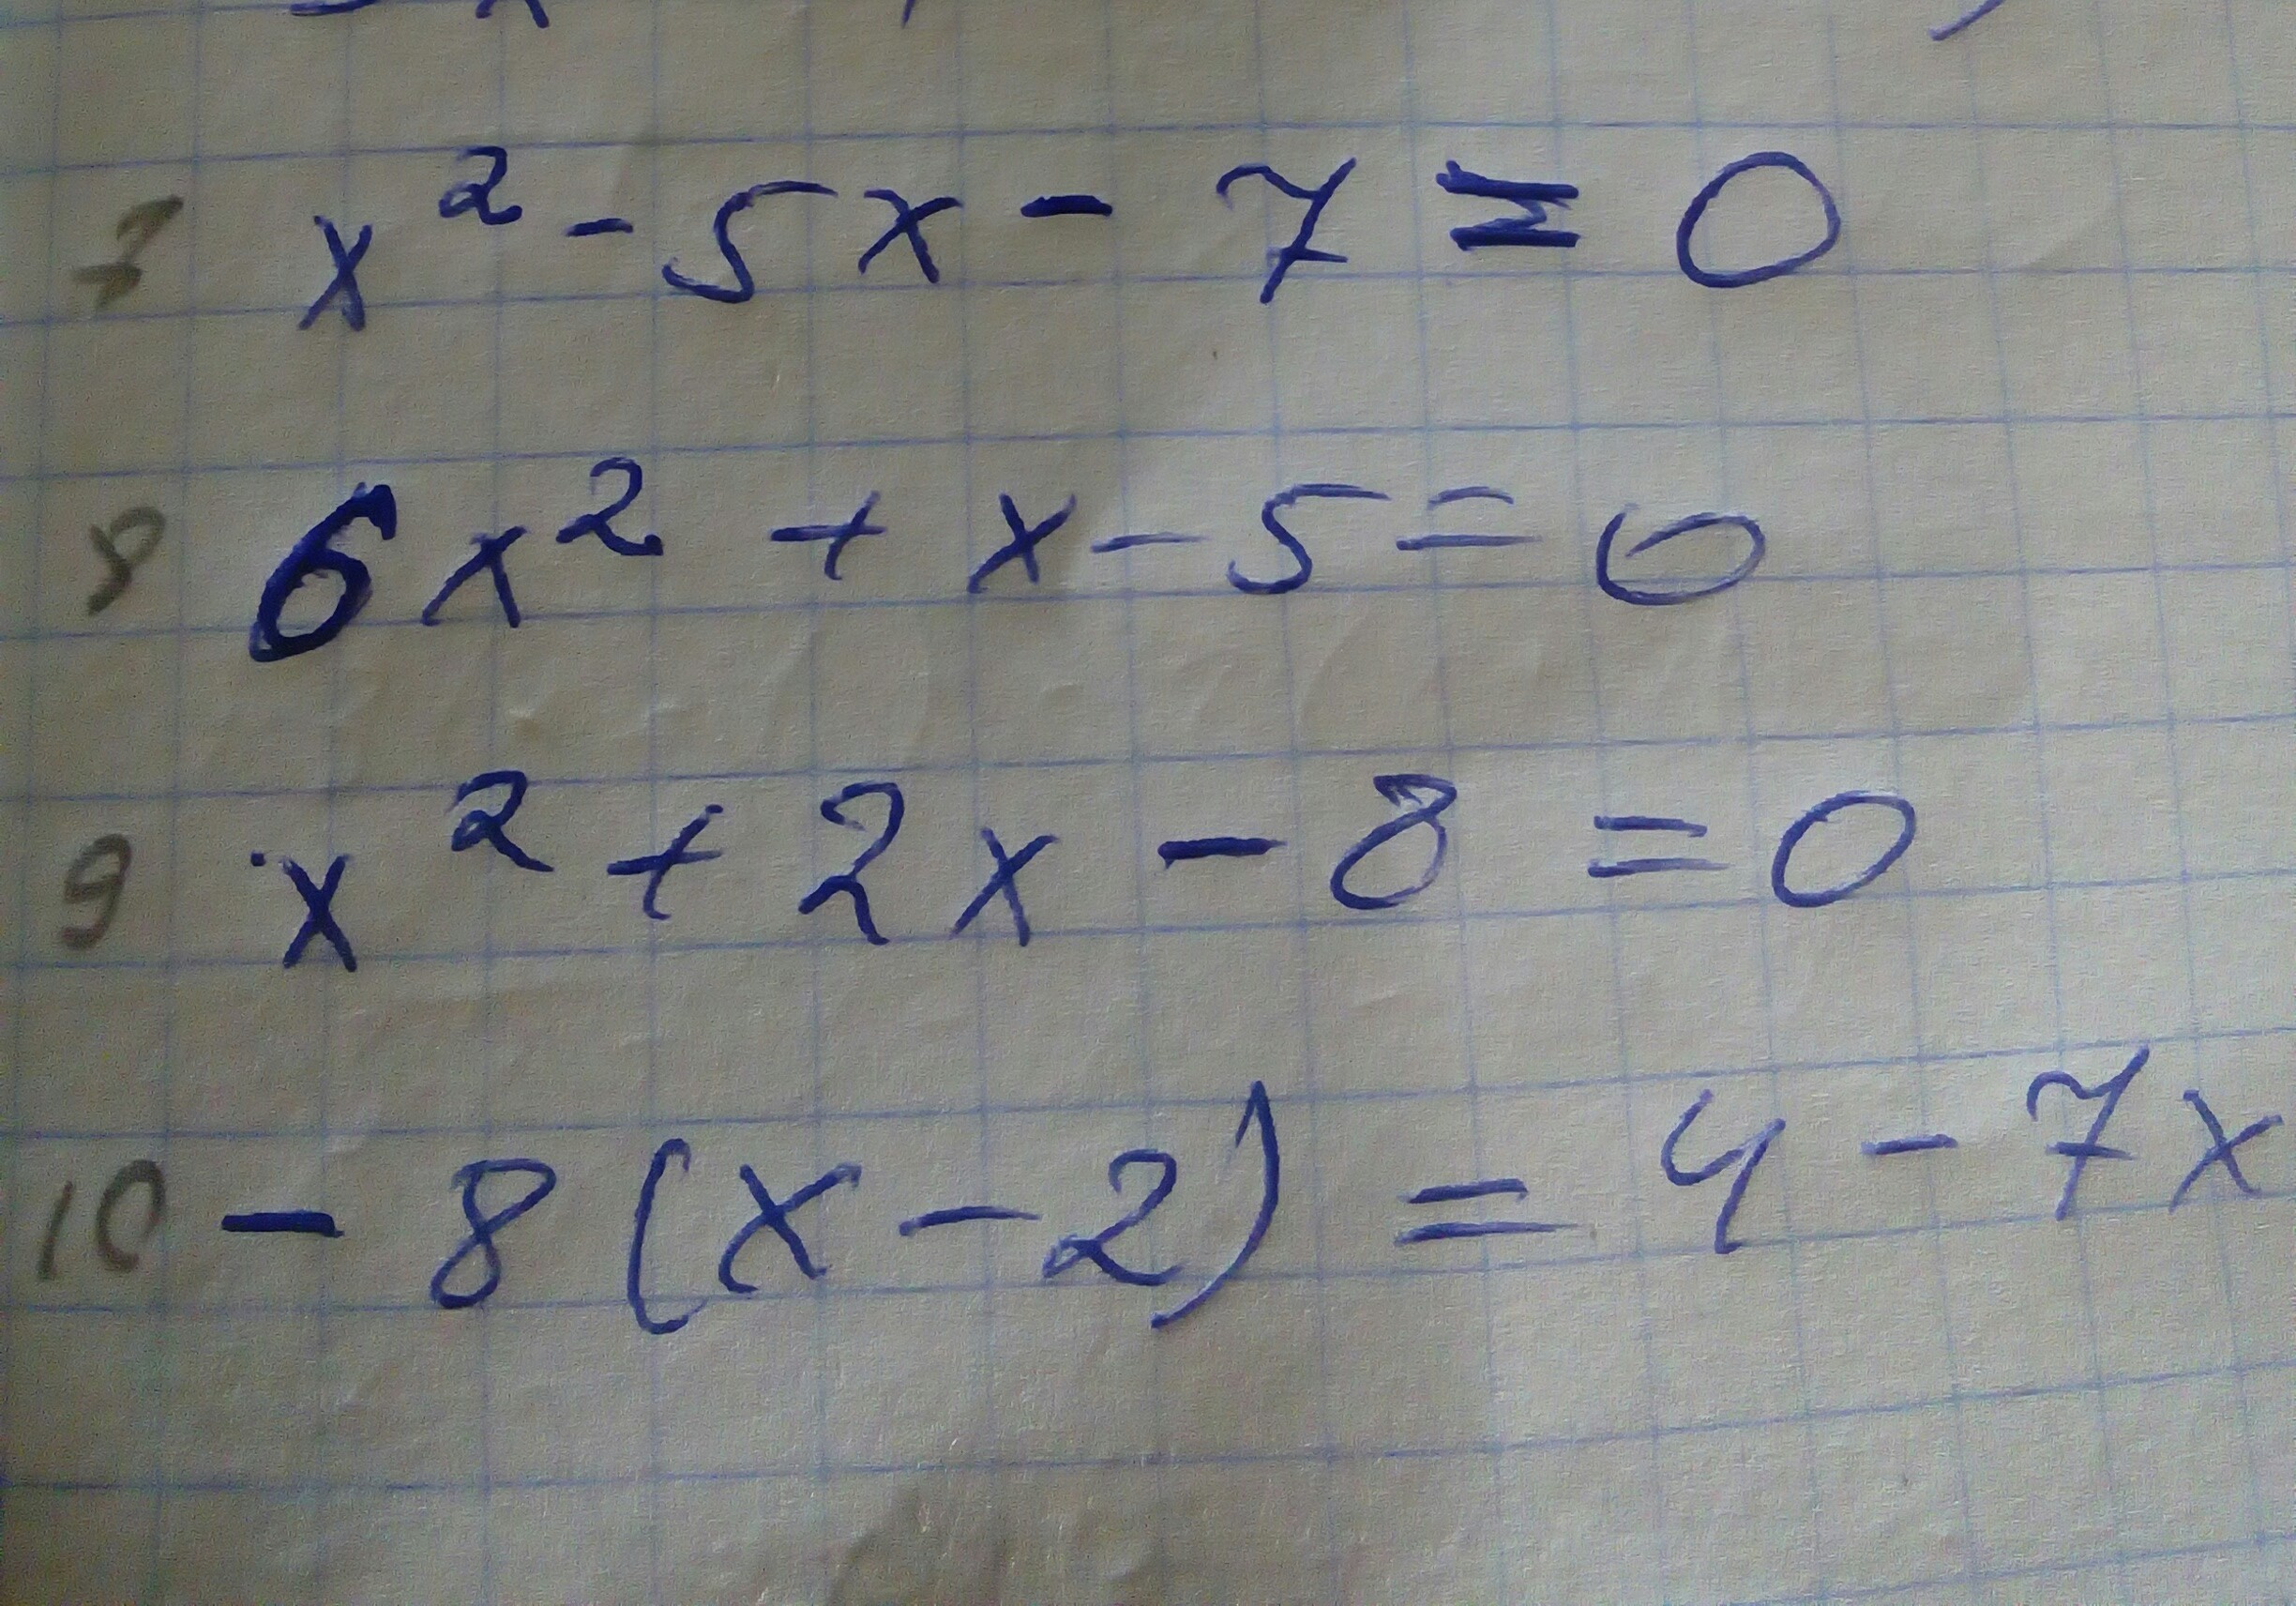 7 x² - 5x - 7 = 0
8 6x² + x - 5 = 0
9 x² + 2x - 8 = 0
10 - 8 (x - 2) = 4 - 7x